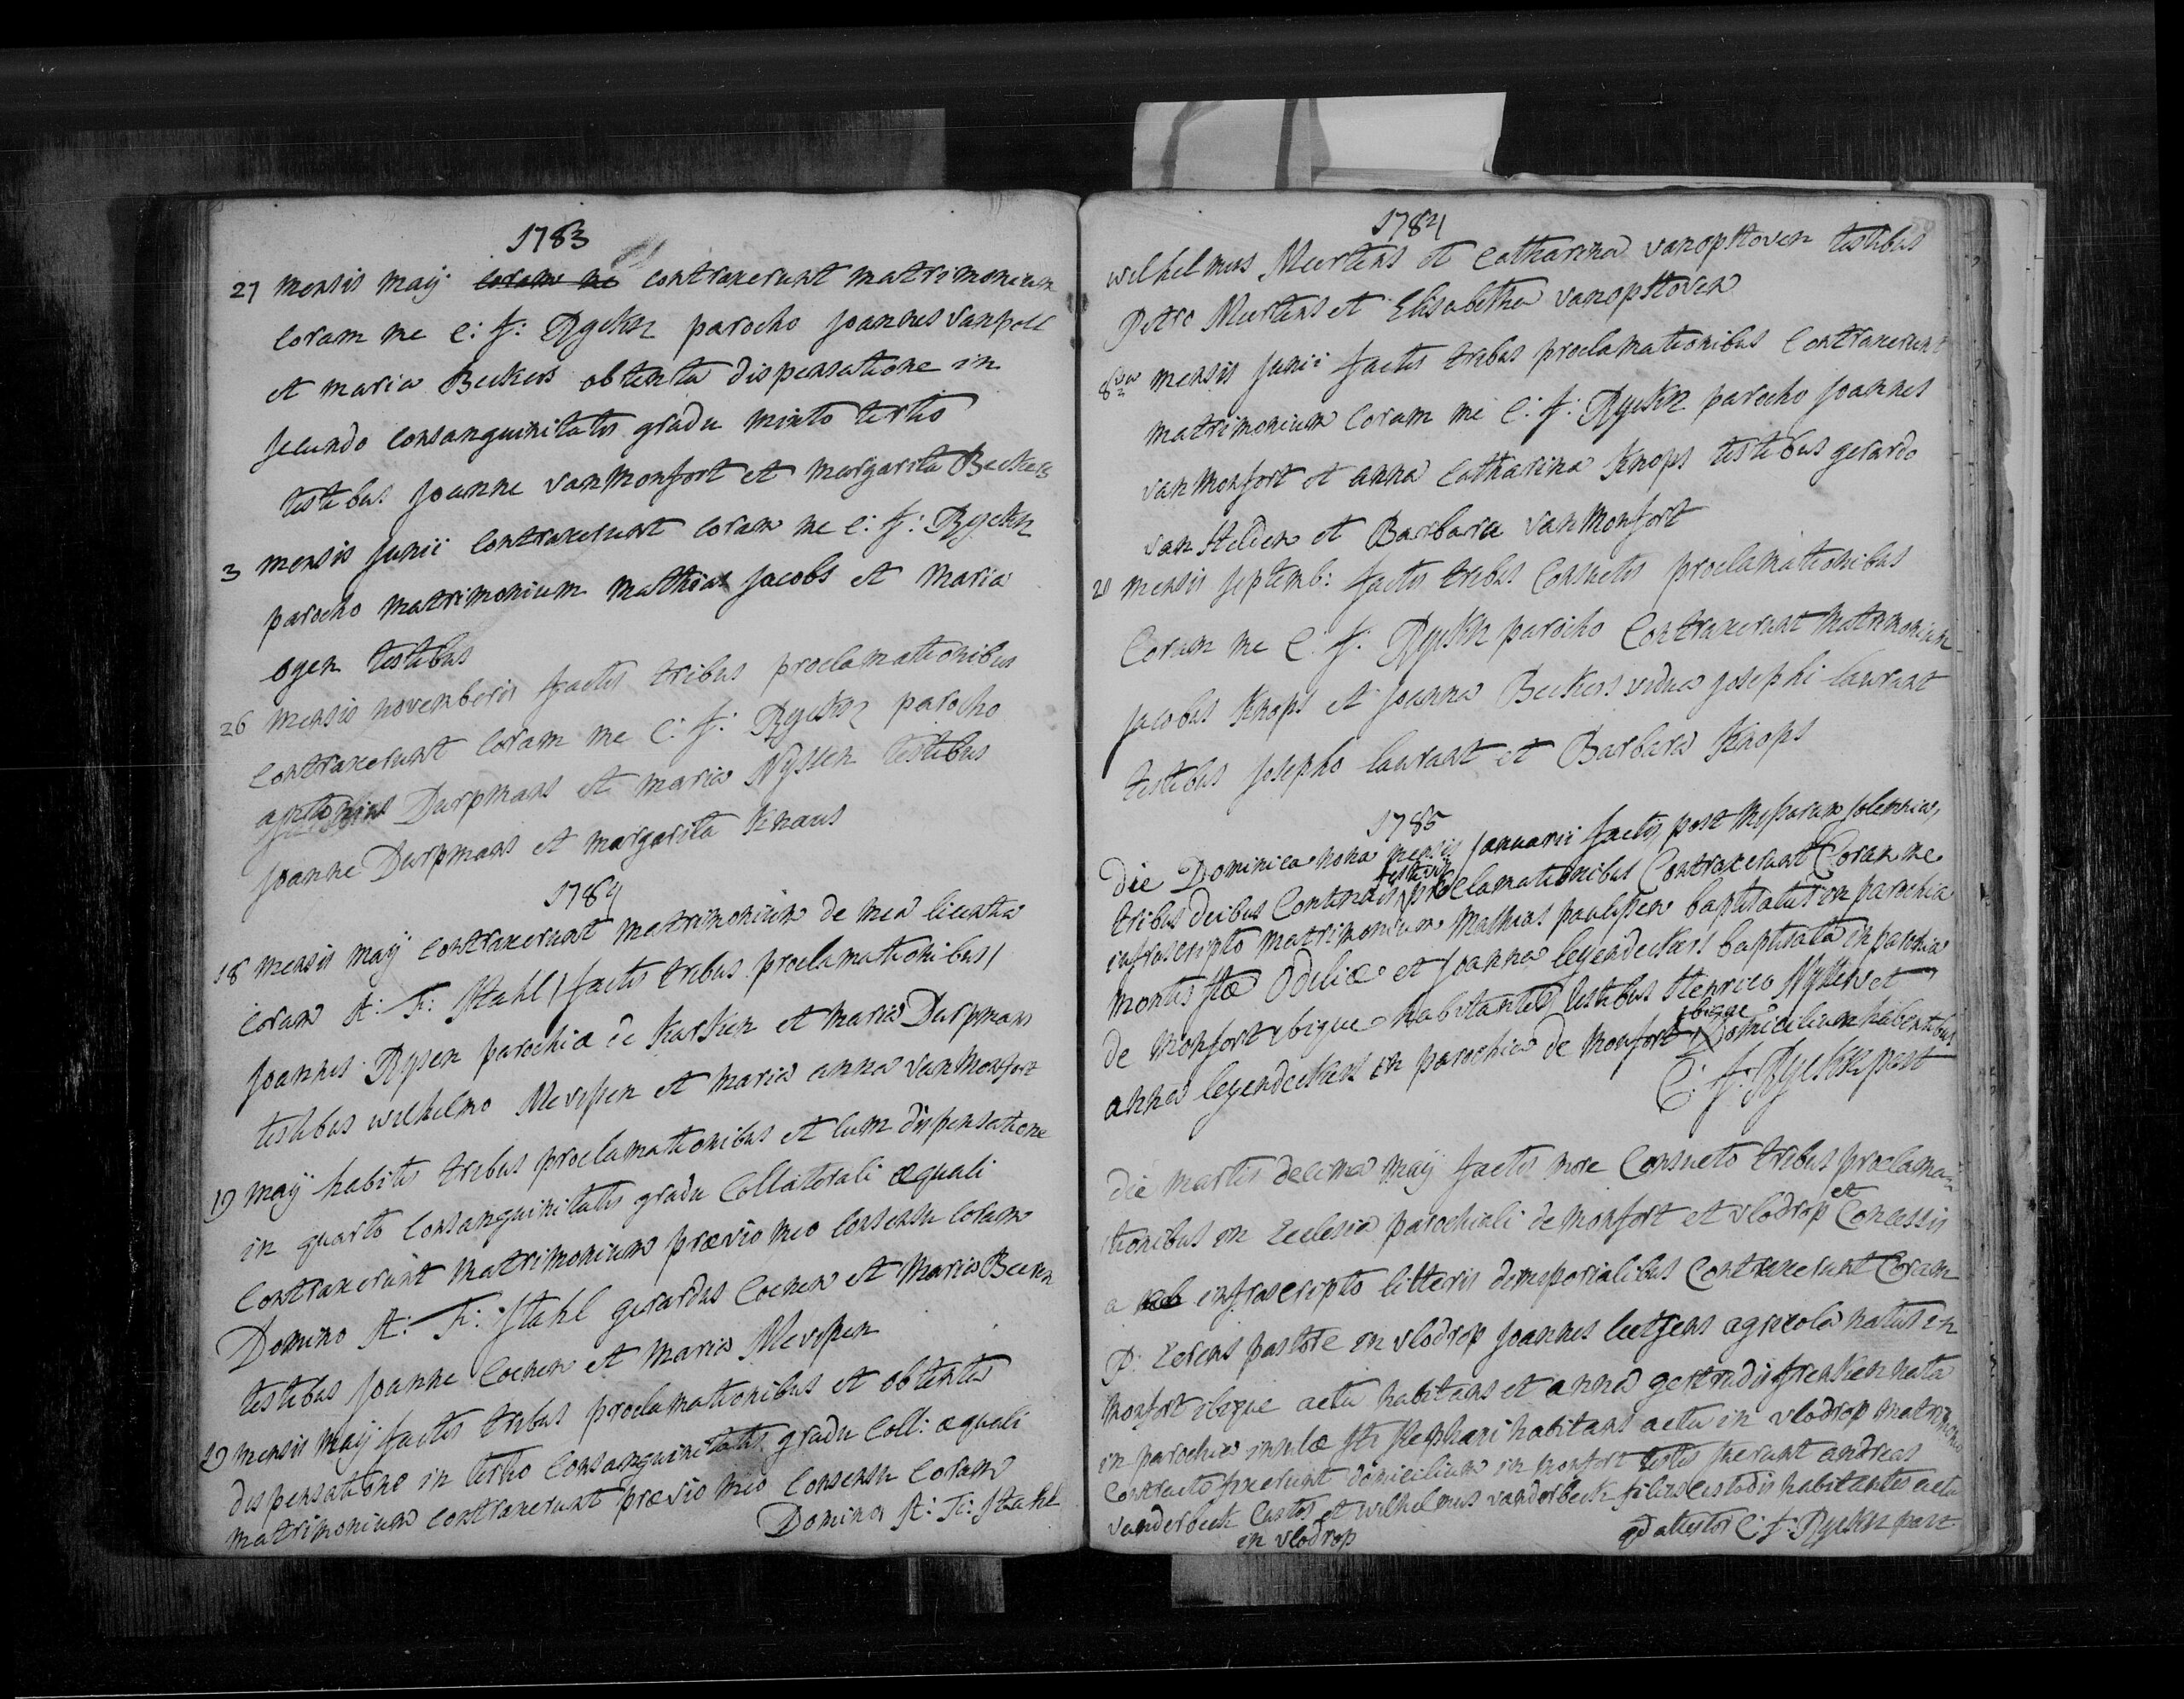 1783
27 mensis maij coram me contraxerunt matrimonium
coram me C: f: Ryckn parocho Joannes vanpoll
et maria Beckers obtenta dispensatione in
secundo consanguinitatis gradu mixto tertio
testibus Joanne van monfort et margarita Beckers
3 mensis Junii contraxerunt coram me C: f: Ryckn
parocho matrimonium mathias Jacobs et maria
ogen testibus
26 mensis novemberis factis tribus proclamationibus
contraxerunt coram me C: f: Ryckn parocho
antonius Durpmans et maria Nyssen testibus
Joanne Durpmans et margarita Knaus
1784
18 mensis maij contraxerunt matrimonium de mea licentia
coram H: Fr: Stahl / factis tribus proclamationibus /
Joannes Rysen parochiae de Karken et maria Durpmans
testibus wilhelmo Mevissen et maria anna van monfort
19 maij habitis tribus proclamationibus et cum dispensatione
in quarto consanguinitatis gradu collaterali aequali
contraxerunt matrimonium praevio meo consensu coram
Domino H: Fr: Stahl gerardus Coenen et maria
testibus Joanne Coenen et maria Mevissen
mensis maij factis tribus proclamationibus et obtenta
dispensatione in tertio consanguinitatis gradu coll: aequali
matrimonium contraxerunt praevio meo consensu coram
Domino H: Fr: Stahl
1784
wilhelmus Meertens et Catharina vanopstoven testibus
Petro Meertens et Elisabetha vanopstoven
8va mensis Junii factis tribus proclamationibus contraxerunt
matrimonium coram me C: f: Ryckn parocho Joannes
van monfort et anna Catharina Knops testibus gerardo
van Helden et Barbara van monfort
mensis septemb: factis tribus consuetis proclamationibus
coram me C: f: Ryckn parocho contraxerunt matrimonium
Jacobus Knops et Joanna Beckers vidua josephi laurant
testibus Josepho laurant et Barbara Knops
1785
die Dominica nona mensis Januarii factis post missarum solemnia,
tribus diebus continuis festivis proclamationibus contraxerunt coram me
infrascripto matrimonium Mathias paulssen baptizatus in parochia
montis stae Odiliae et Joanna leyendeckers baptizata in parochia
de monfort ibique habitantes testibus Henrico Nyssen et
anna leyendeckers in parochia de monfort ibique Domicilium habentibus
C: f: Ryckn past
die martis decima maij factis more consueto tribus proclama=
tionibus in Ecclesia parochiali de monfort et vlodrop et concessis
a me infrascripto litteris dimissorialibus contraxerunt coram
P: Zerens pastore in vlodrop Joannes leetsens agricola natus in
monfort ibique actu habitans et anna gertrudis frencken nata
in parochia insulae sti stephani habitans actu in vlodrop matrimonio
contracto fixerunt domicilium in monfort testes fuerunt andreas
vanderbeek Custos et wilhelmus vanderbeek filius custodis habitantes actu
in vlodrop
qd attestor C: f: Ryckn past